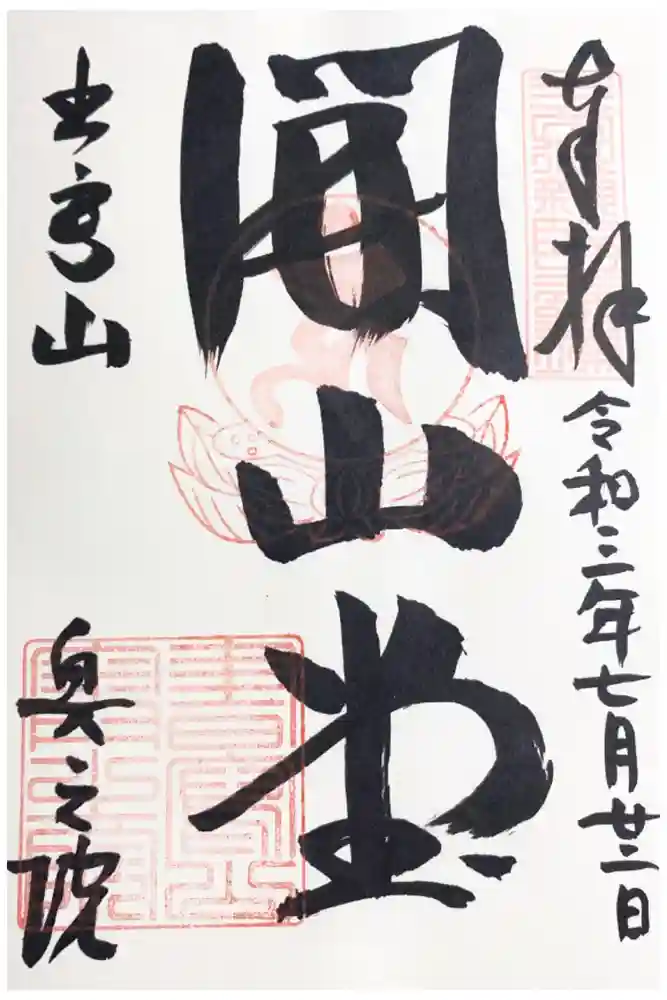 奉拝
令和三年七月廿三日
開山堂
書寫山
奥之院